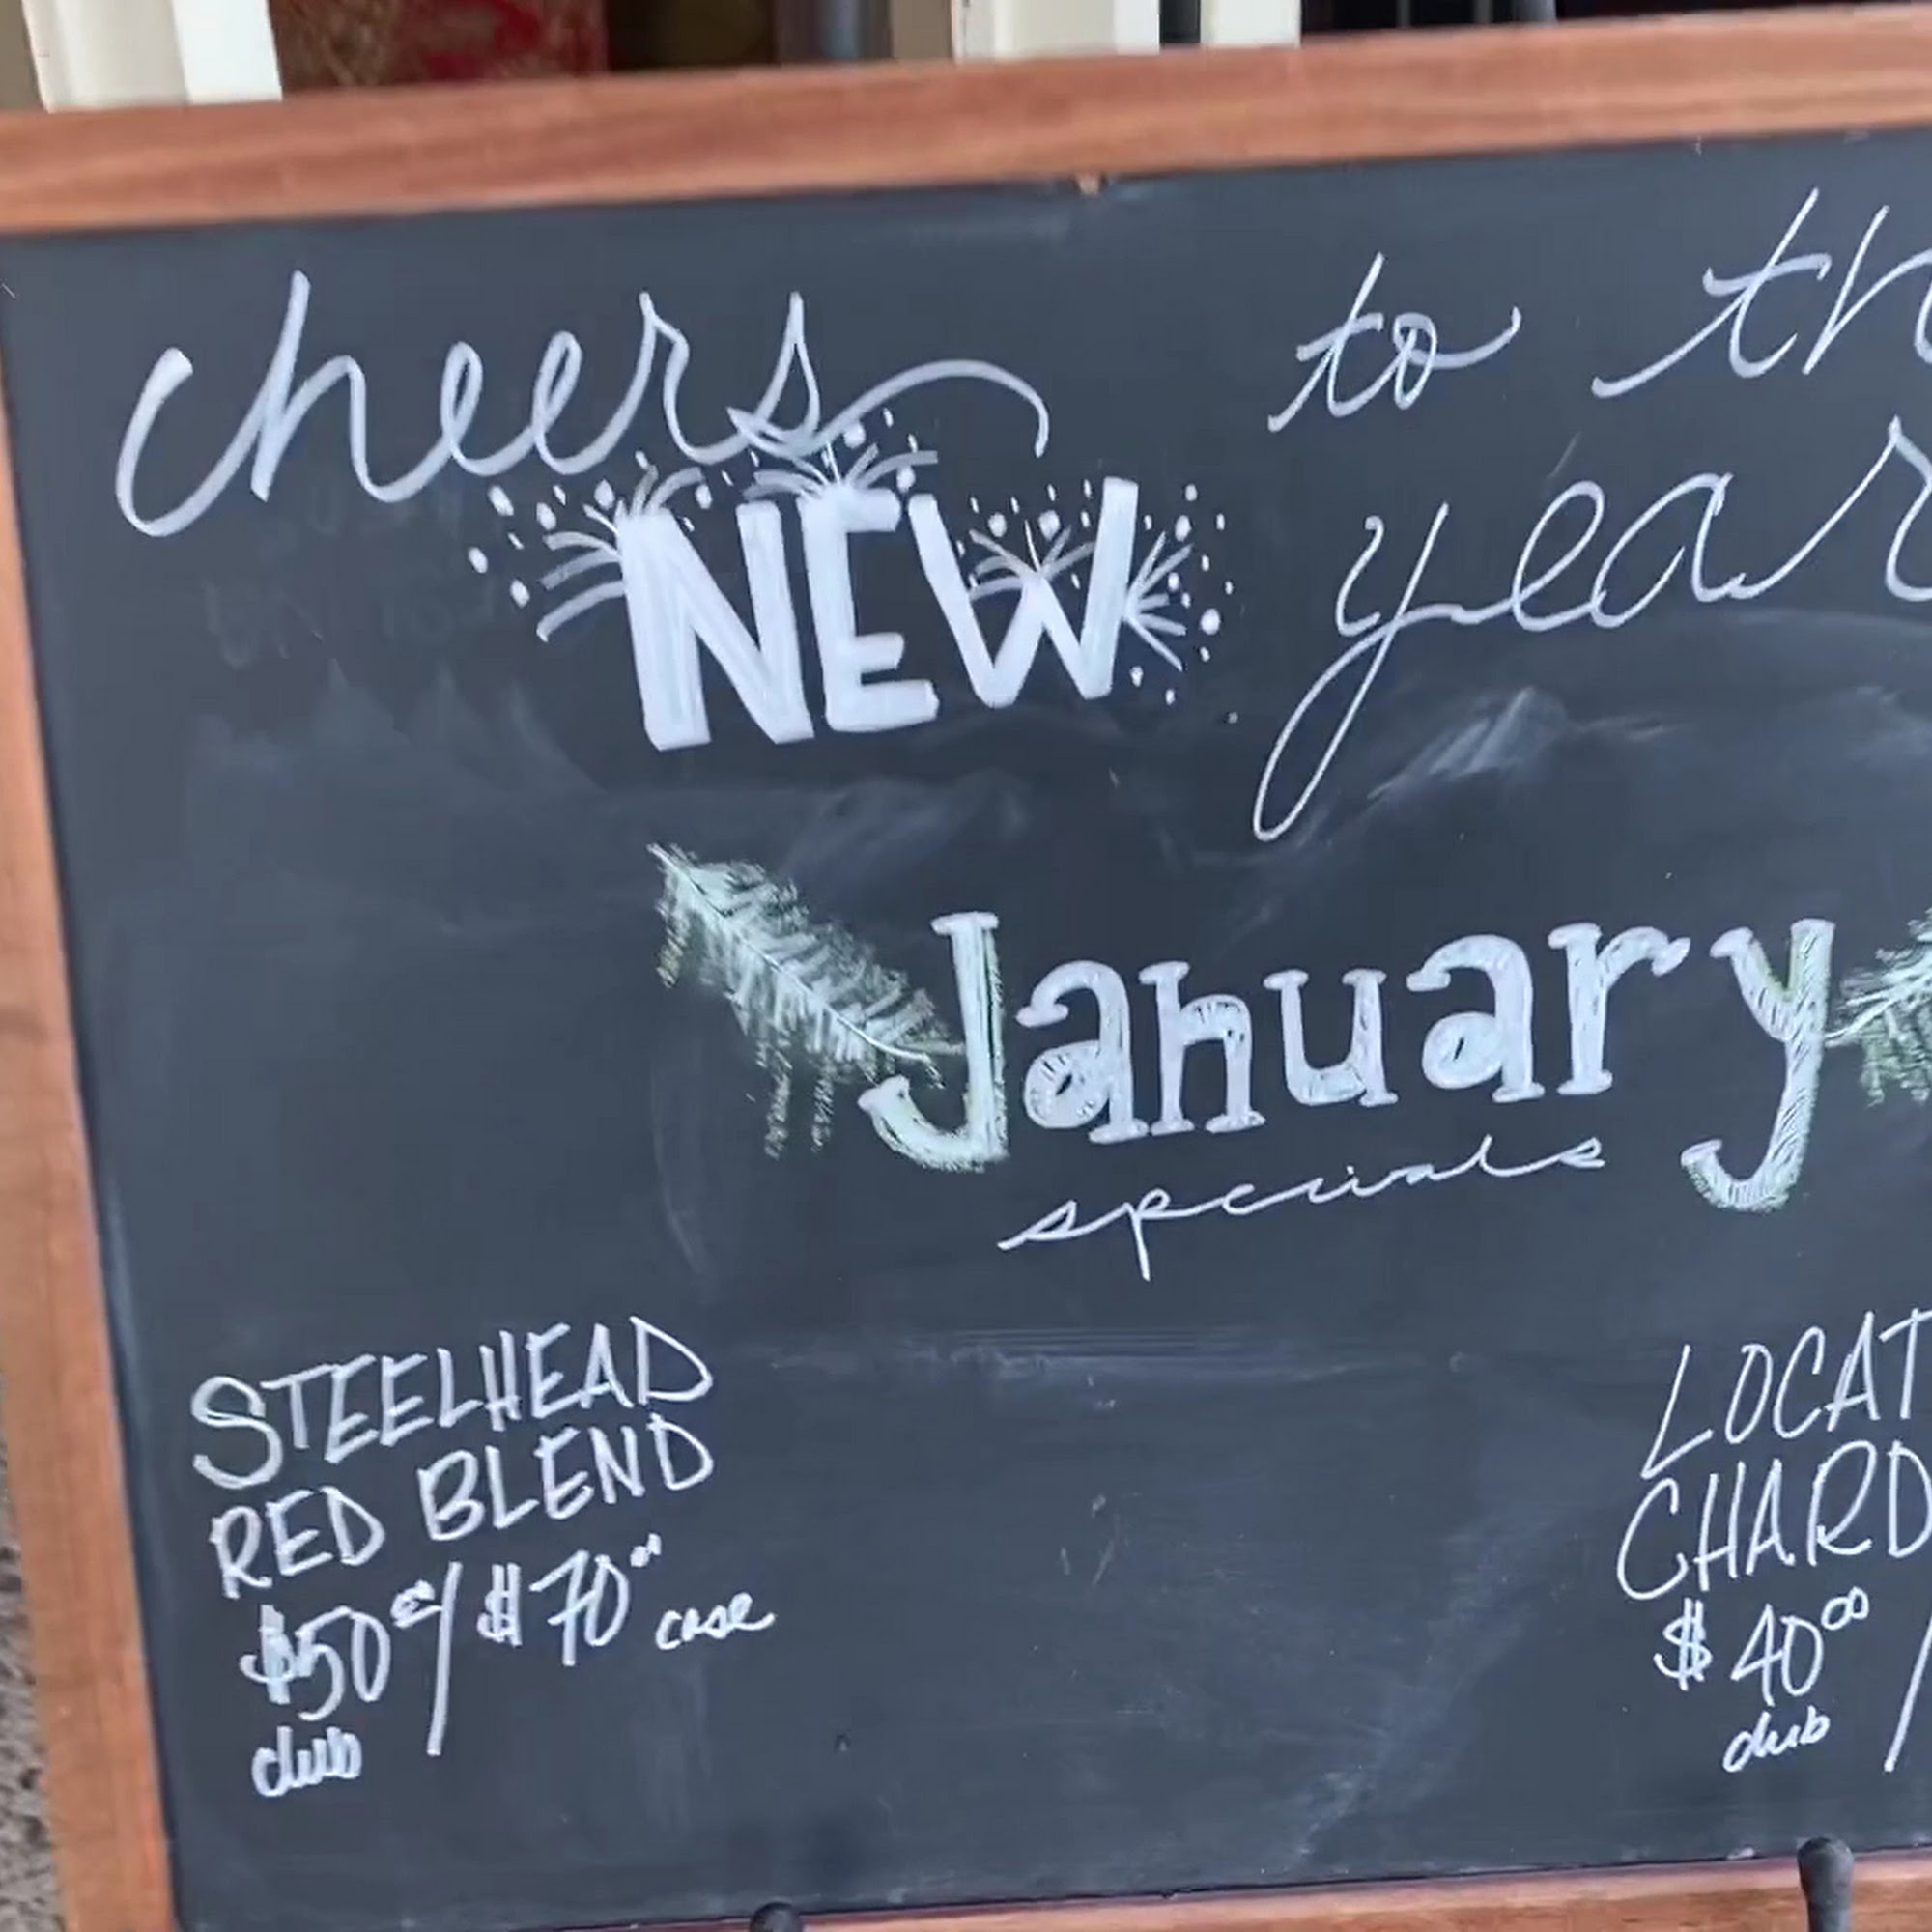 cheers to th
NEW year
January
specials
STEELHEAD
RED BLEND
$50⁰⁰/$70⁰⁰ case
club
LOCAT
CHARD
$40⁰⁰/
club